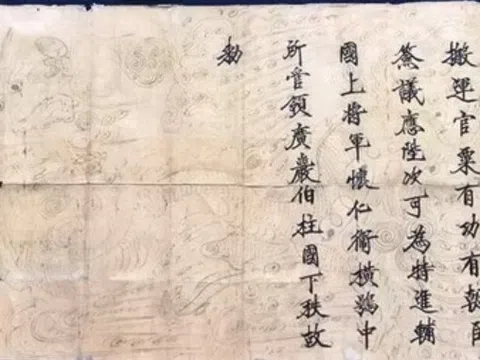 搬運官粟有功有朝臣
僉議應陞次可為特進輔
國上將軍懷仁衛橫海中
所管領廣巖伯柱國下秩故
勑